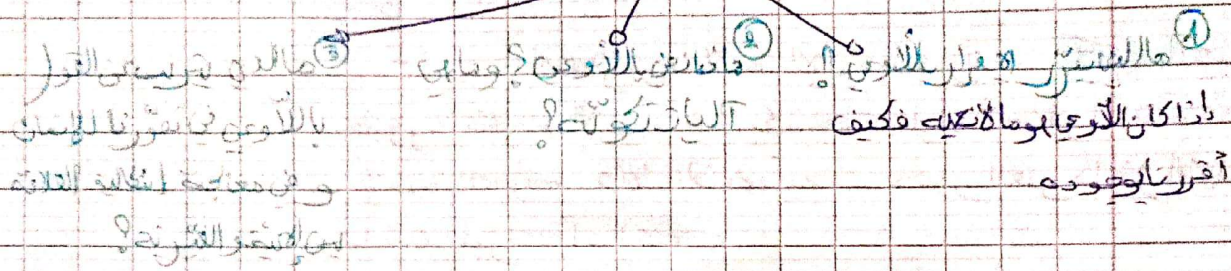 ① ما الذي يبرّر الإقرار باللاوعي؟!
إذا كان اللاوعي هو ما لا نعيه فكيف
أقررنا بوجوده
② ماذا نعني باللاوعي؟ وما هي
آليات تكوّنه؟
③ ما الذي يترتب عن القول
باللاوعي في تصوّرنا للإنسان
و في معالجة إشكالية العلاقة
بين الإنية و الغيرية؟